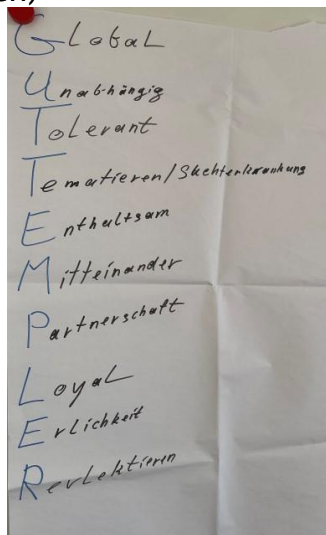 Global
Unabhängig
Tolerant
Tematieren/Suchterkrankung
Enthaltsam
Mitteinander
Partnerschaft
Loyal
Erlichkeit
Revlektieren